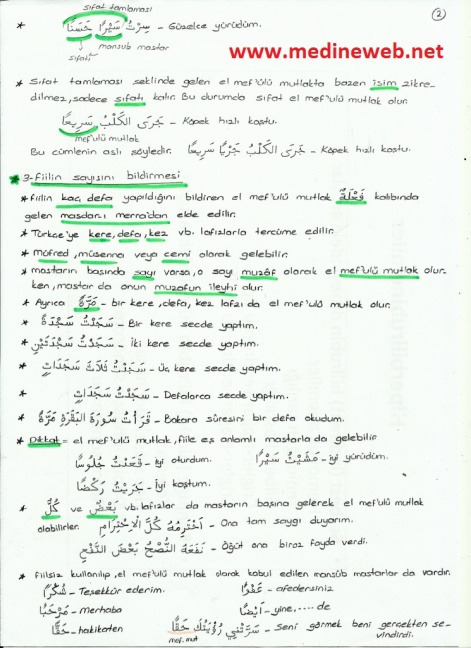 sıfat tamlaması
②
* سِرْتُ سَيْرًا حَسَنًا - Güzelce yürüdüm.
mansub mastar
sıfatı
www.medineweb.net
* Sıfat tamlaması şeklinde gelen el mef'ulü mutlakta bazen isim zikre-
dilmez, sadece sıfatı kalır. Bu durumda sıfat el mef'ulü mutlak olur.
جَرَى الْكَلْبُ سَرِيعًا - Köpek hızlı koştu.
mef'ulü mutlak
Bu cümlenin aslı şöyledir. جَرَى الْكَلْبُ جَرْيًا سَرِيعًا - Köpek hızlı koştu.
* 3-Fiilin sayısını bildirmesi
* Fiilin kaç defa yapıldığını bildiren el mef'ulü mutlak فَعْلَةٌ kalıbında
gelen masdarı merra'dan elde edilir.
* Türkçe'ye kere, defa, kez vb. lafızlarla tercüme edilir.
* Müfred, müsenna veya cemi olarak gelebilir.
* mastarın başında sayı varsa, o sayı muzâf olarak el mef'ulü mutlak olur.
ken, mastar da onun muzafun ileyhi olur.
* Ayrıca مَرَّةً - bir kere, defa, kez lafzı da el mef'ulü mutlak olur.
* سَجَدْتُ سَجْدَةً - Bir kere secde yaptım.
* سَجَدْتُ سَجْدَتَيْنِ - İki kere secde yaptım.
* سَجَدْتُ ثَلَاثَ سَجَدَاتٍ - Üç kere secde yaptım.
* سَجَدْتُ سَجَدَاتٍ - Defalarca secde yaptım.
* قَرَأْتُ سُورَةَ الْبَقَرَةِ مَرَّةً - Bakara sûresini bir defa okudum.
* Dikkat = el mef'ulü mutlak, fiile eş anlamlı mastarla da gelebilir
قَعَدْتُ جُلُوسًا - İyi oturdum. مَشَيْتُ سَيْرًا - İyi yürüdüm.
جَرَيْتُ رَكْضًا - İyi koştum.
* كُلُّ ve بَعْضُ vb. lafızlar da mastarın başına gelerek el mef'ulü mutlak
olabilirler. اَحْتَرِمُهُ كُلَّ الْاِحْتِرَامِ - Ona tam saygı duyarım.
نَفَعَهُ النُّصْحُ بَعْضَ النَّفْعِ - Öğüt ona biraz fayda verdi.
* Fiilsiz kullanılıp, el mef'ulü mutlak olarak kabul edilen mansûb mastarlar da vardır.
شُكْرًا - Teşekkür ederim. عَفْوًا - afedersiniz
مَرْحَبًا - merhaba اَيْضًا - yine, .... de
حَقًّا - hakikaten سَرَّتْنِي رُؤْيَتُكَ حَقًّا - Seni görmek beni gerçekten se-
mef. mut vindirdi.